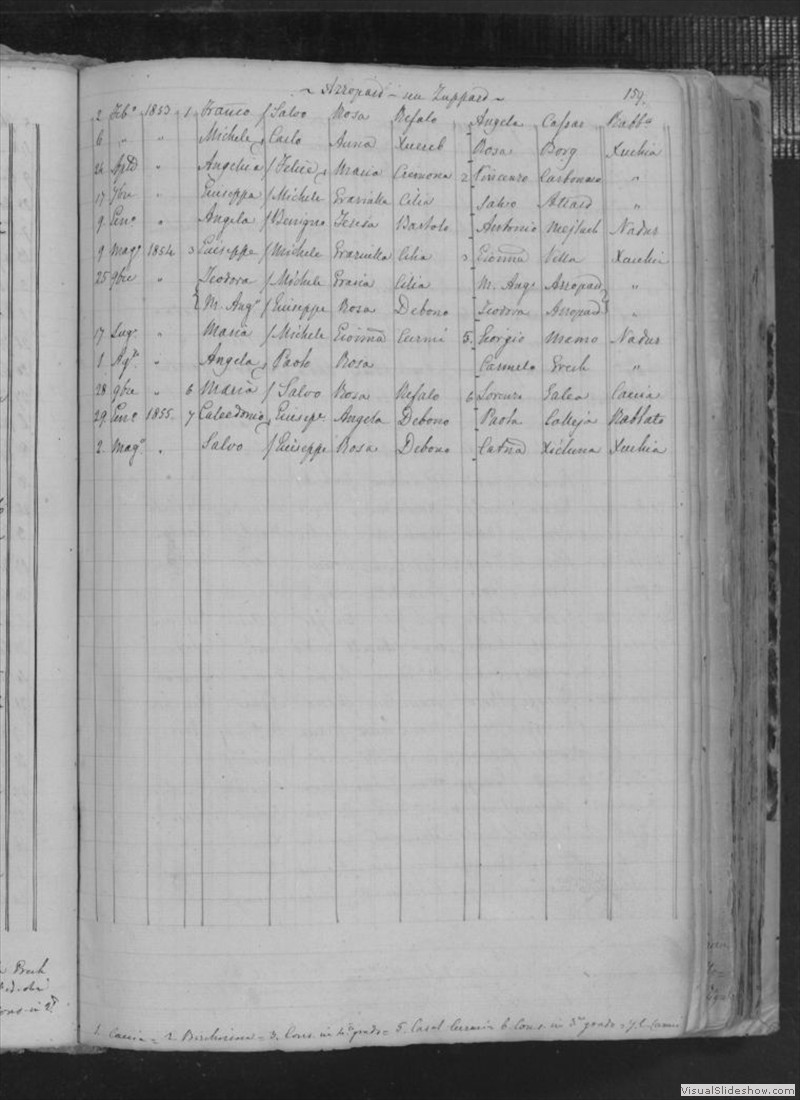 ~ Azzopard – seu Zuppard ~ 159.
2 Feb.º 1853 1 Franco f Salvo Rosa Refalo Angela Cassar Rabb.to
6 " " Michele, Carlo Anna Xuereb Rosa Borg Xeuchia
" Angelica f Felice, Maria Cremona 2 Vincenzo Carbonaro "
17 " Giuseppa f Michele Grazialla Cilia Salvo Attard "
9 Gen.º " Angela f Benigno Teresa Bartolo Antonio Mejlach Nadur
9 Mag.º 1854 3 Giuseppe f Michele Graziulla Cilia 3 Gionna Vella Xeuchia
25 9bre " Teodora f Michele Grazia Cilia M. Ang.º Azzopad "
M. Ang.º f Giuseppe Rosa Debono Teodora Azzopad "
17 Lug.º " Maria f Michele Gionna Curmi 5. Giorgio Memo Nadur
1 " Angela, Paolo Rosa Carmelo Grech "
28 9bre " 6 Maria f Salvo Rosa Refalo 6 Lorenzo Galea Caccia
29 Gen.º 1855. 7 Calcedonio, Giusepe Angela Debono Paola Calleja Rabbato
2. Mag.º " Salvo f Giuseppe Rosa Debono Catna Xicluna Xeuchia
Grech
1. Caccia = 2. = 3. Cons. in 4.º grado = 5. Casal Curmi 6. Cons. in 3.º grado = 7.
VisualSlideshow.com